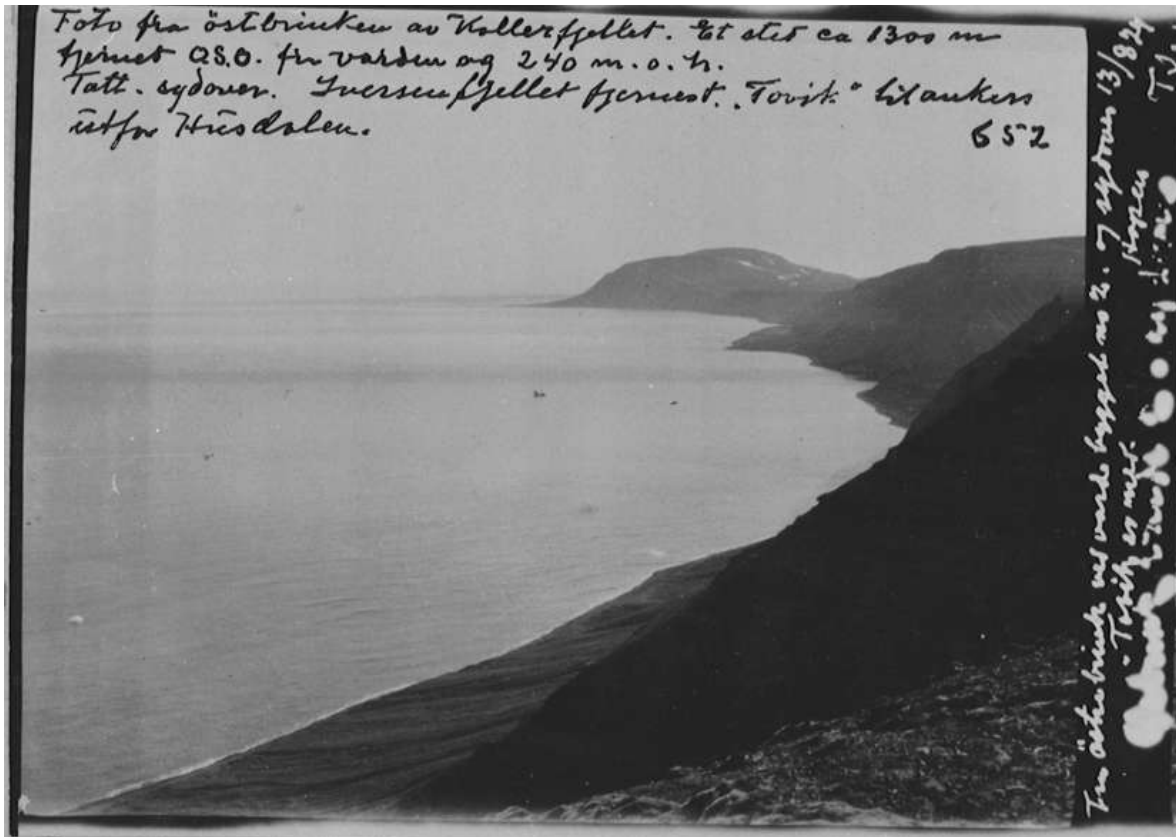 Foto fra östbrinken av Kollerfjellet. Et sted ca 1300 m
fjernet O.S.O. fra varden og 240 m.o.h.
Tatt. sydover. Iversenfjellet fjernest. "Tovik" til ankers
utfor Husdalen.
652
Fra östre brink ved varde bygget no 2. 7 sydover 13/8 24
"Tovik" er med. Hopen TI